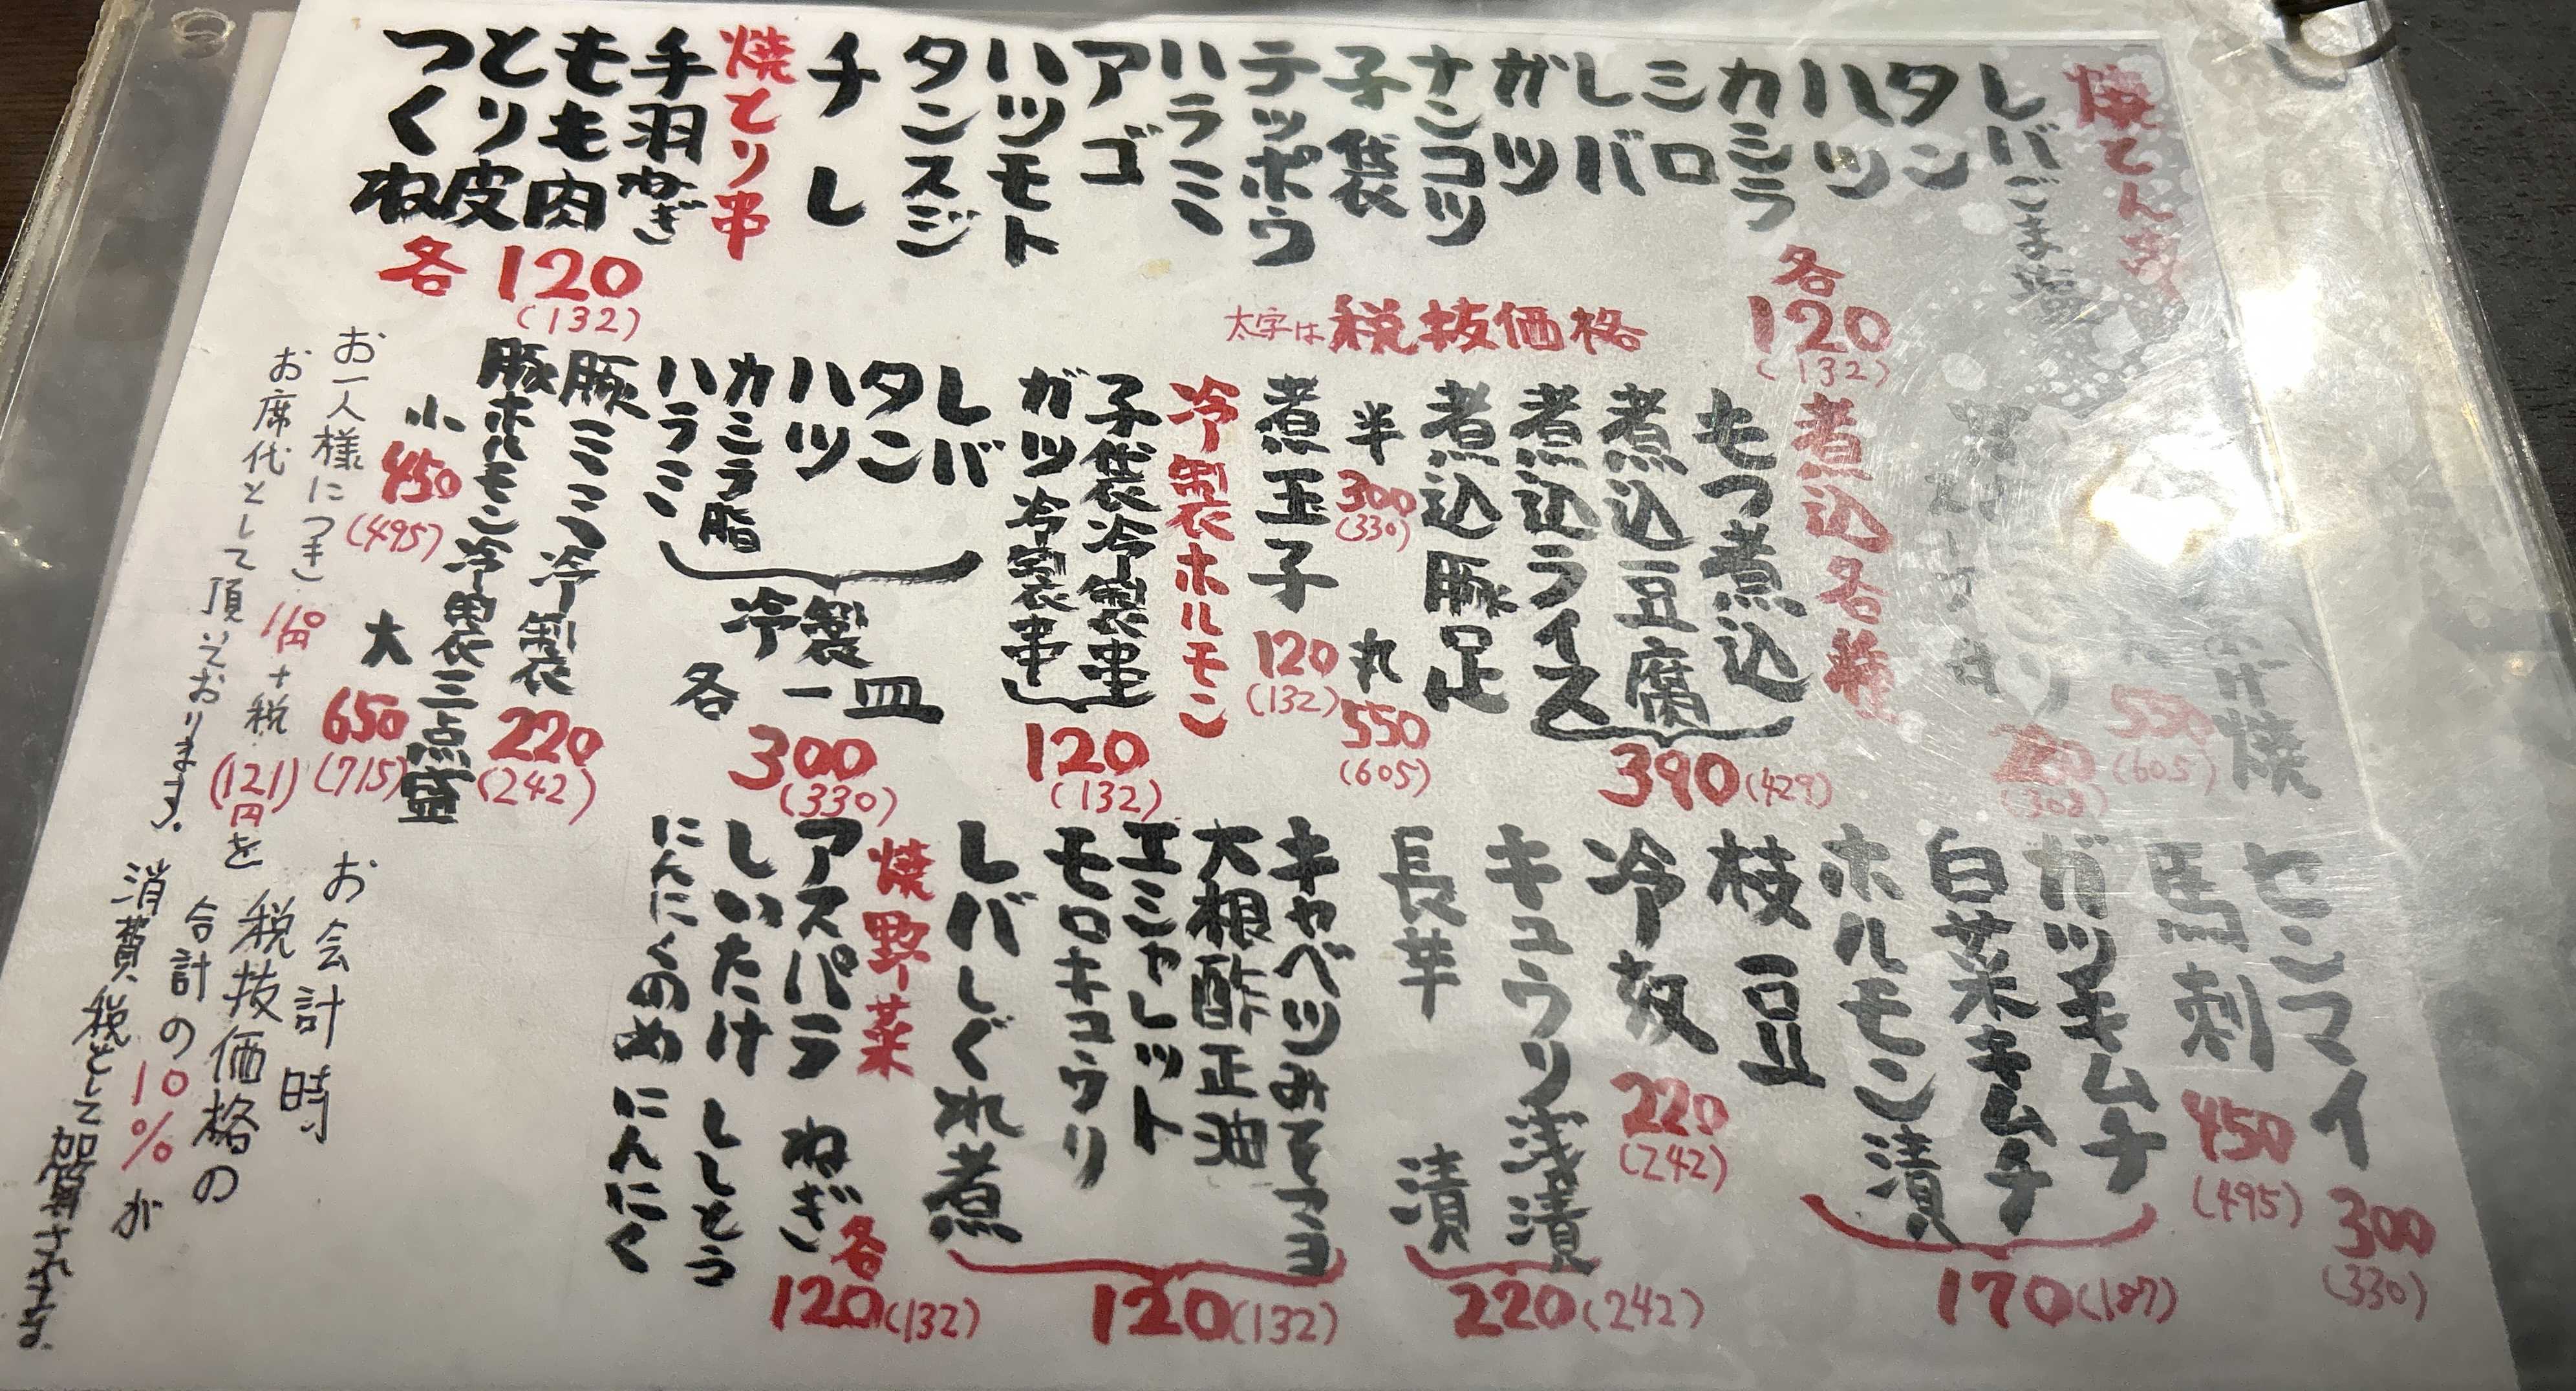 焼とん串
レバごま塩
タン
ハツ
カシラ
シロ
レバ
ガツ
ナンコツ
子袋
テッポウ
ハラミ
アゴ
ハツモト
タンスジ
チレ
各120
(132)
焼とり串
手羽ねぎ
もも肉
とり皮
つくね
各120
(132)
太字は税抜価格
焼
550
(605)
280
(308)
煮込各種
もつ煮込
煮込豆腐
煮込ライス
390(429)
煮込豚足
半300
(330)
丸550
(605)
煮玉子
120
(132)
冷製ホルモン
子袋冷製串
ガツ冷製串
120
(132)
レバ
タン
ハツ
カシラ脂
ハラミ
冷製
各一皿
300
(330)
豚ミミ冷製
220
(242)
豚ホルモン冷製三点盛
小450
(495)
大650
(715)
センマイ300
(330)
馬刺450
(495)
ガツキムチ
白菜キムチ
ホルモン漬
170(187)
枝豆
冷奴
220
(242)
キュウリ浅漬
長芋漬
220(242)
キャベツみそマヨ
大根酢正油
エシャレット
モロキュウリ
レバしぐれ煮
120(132)
焼野菜
アスパラ ねぎ
しいたけ ししとう
にんにくのめ にんにく
各120(132)
お一人様につき110円+税(121)円を
お席代として頂いております。
お会計時
税抜価格の
合計の10%が
消費税として加算されます。